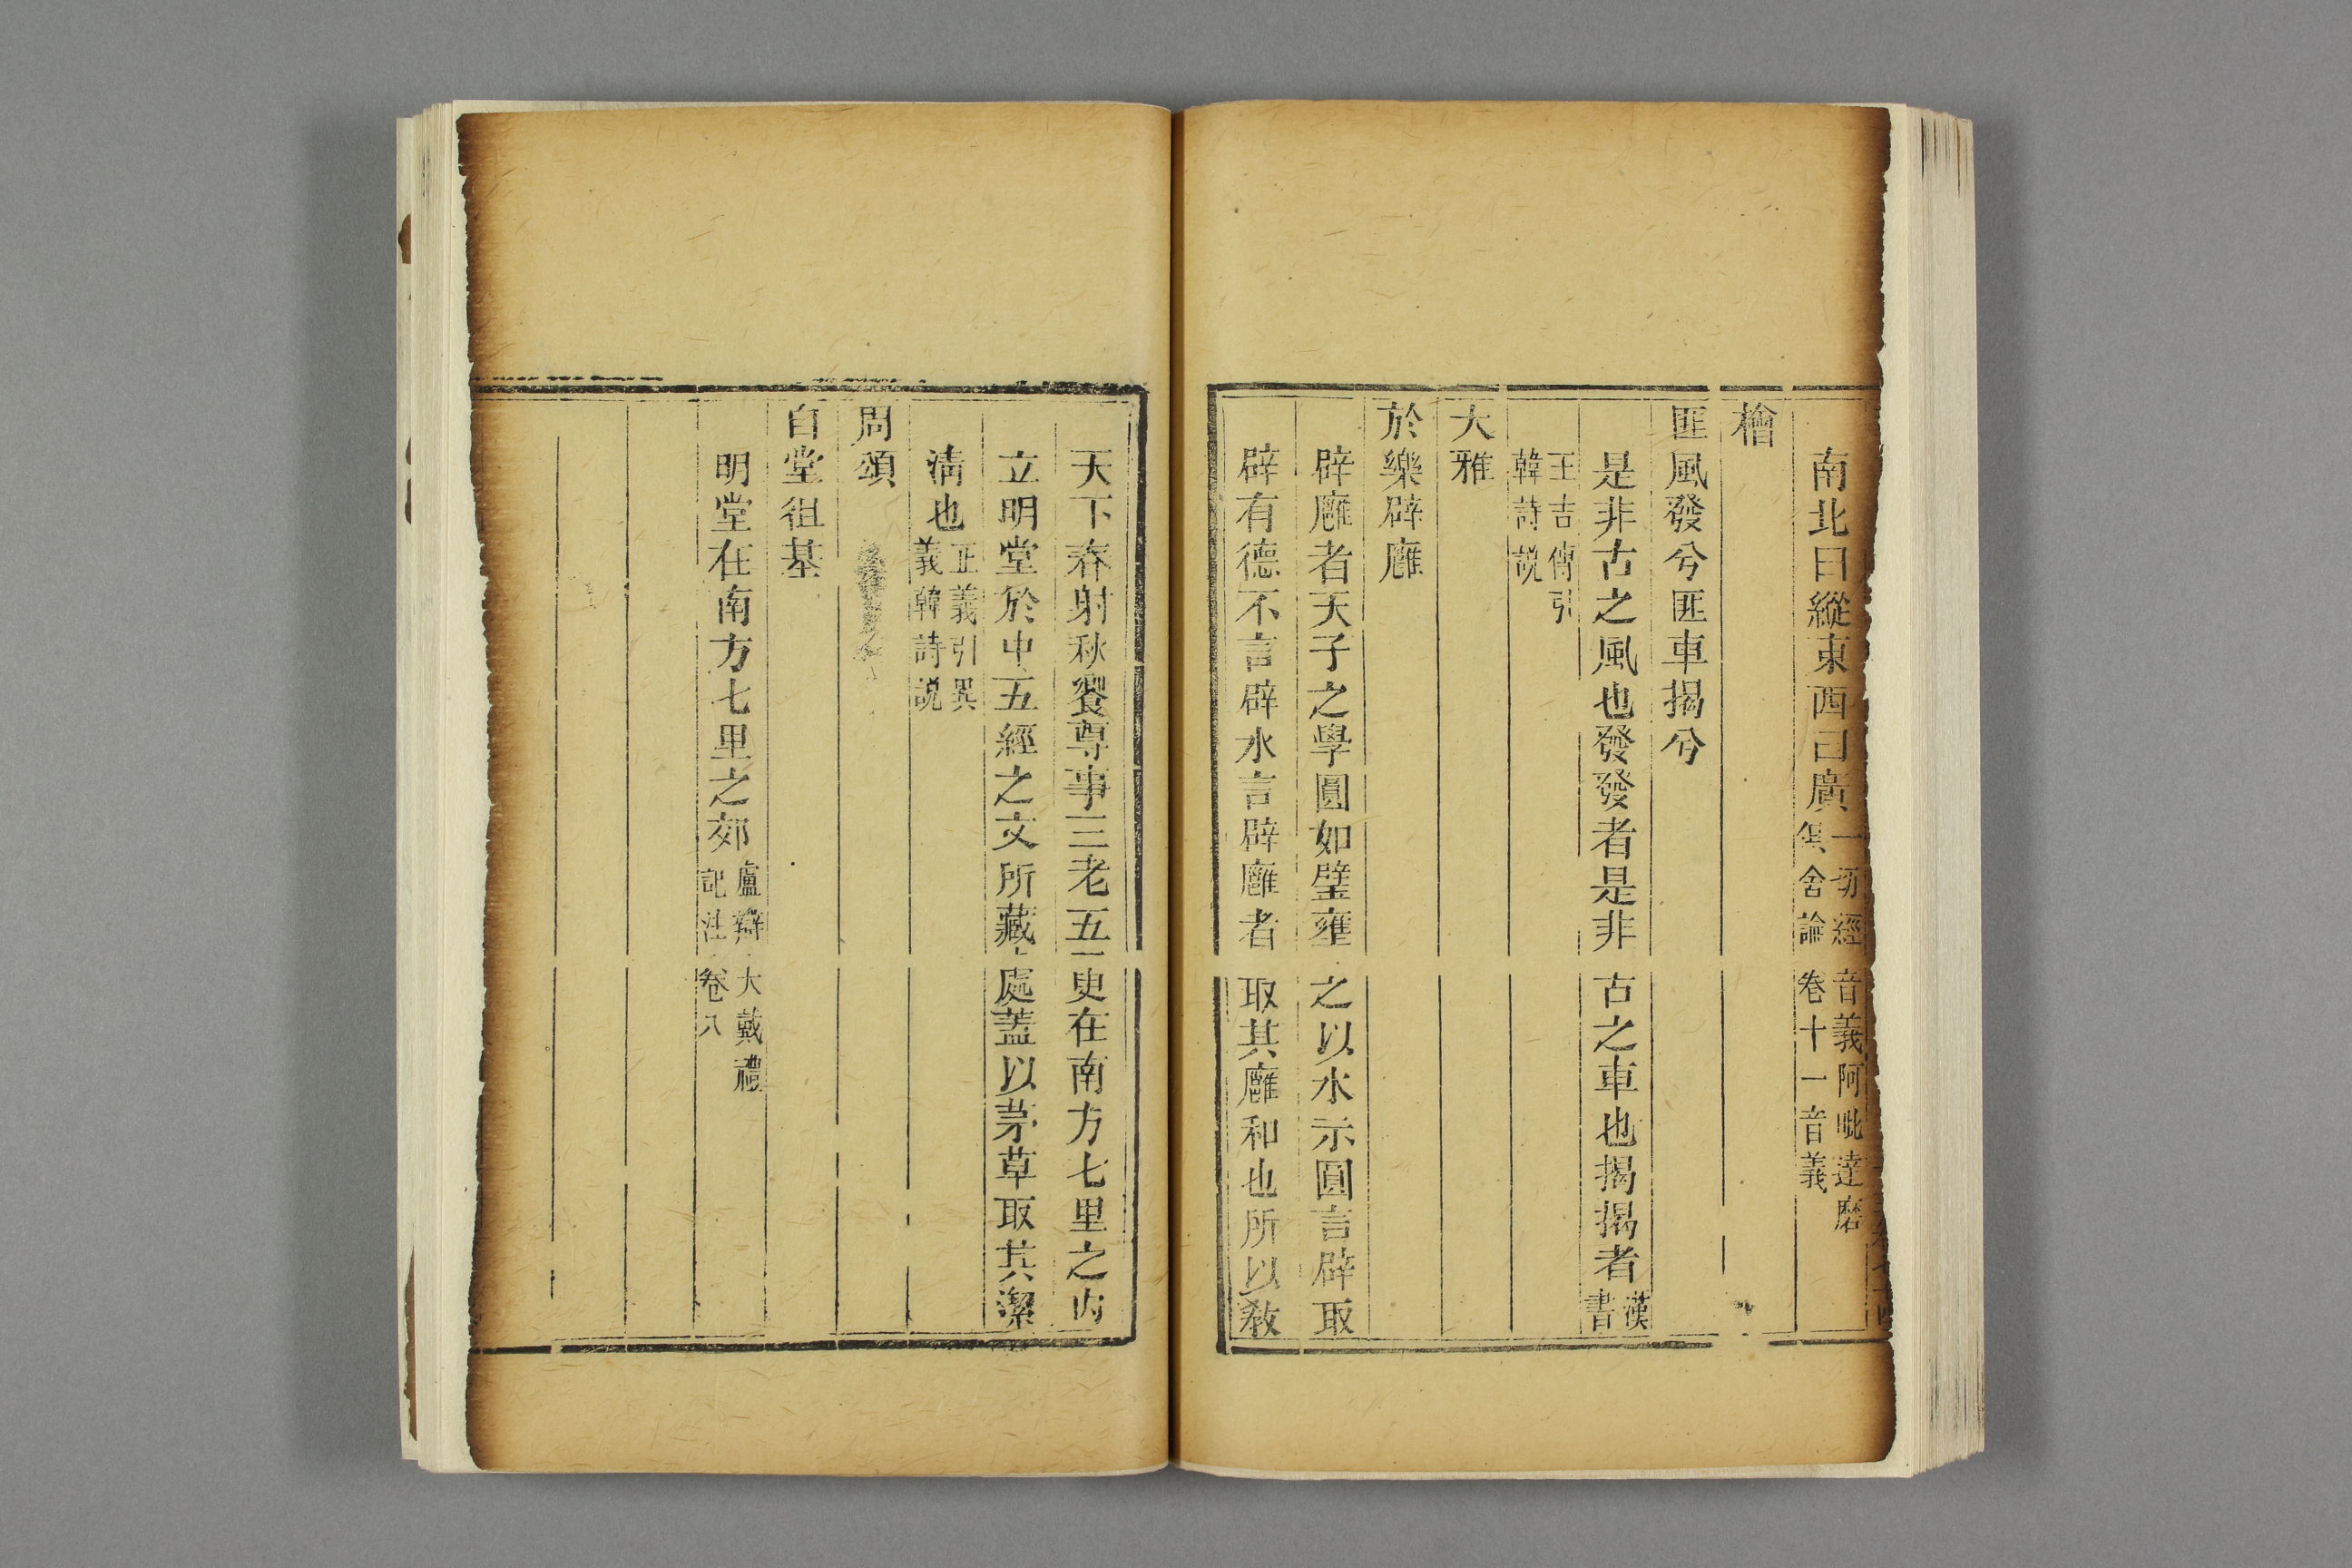 南北曰縱東西曰廣一切經音義阿毗達磨
俱舍論卷十一音義
檜
匪風發兮匪車揭兮
是非古之風也發發者是非古之車也揭揭者漢書
王吉傳引
韓詩說
大雅
於樂辟廱
辟廱者天子之學圓如璧壅之以水示圓言辟取
辟有德不言辟水言辟廱者取其廱和也所以教
天下春射秋饗尊事三老五更在南方七里之內
立明堂於中五經之文所藏處蓋以茅草取其潔
清也正義引異
義韓詩說
周頌
自堂徂基
明堂在南方七里之郊盧辯大戴禮
記注卷八